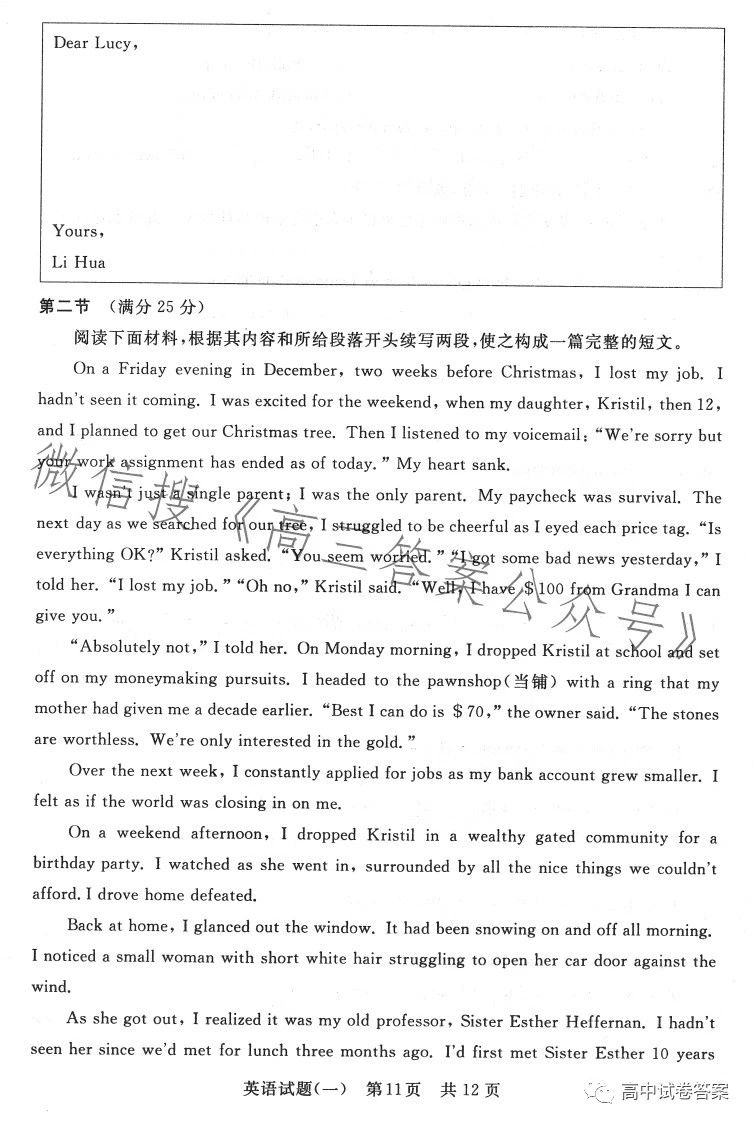 Dear Lucy,
Yours,
Li Hua
第二节 (满分 25 分)
阅读下面材料,根据其内容和所给段落开头续写两段,使之构成一篇完整的短文。
On a Friday evening in December, two weeks before Christmas, I lost my job. I
hadn't seen it coming. I was excited for the weekend, when my daughter, Kristil, then 12,
and I planned to get our Christmas tree. Then I listened to my voicemail: "We're sorry but
your work assignment has ended as of today." My heart sank.
I wasn't just a single parent; I was the only parent. My paycheck was survival. The
next day as we searched for our tree, I struggled to be cheerful as I eyed each price tag. "Is
everything OK?" Kristil asked. "You seem worried." "I got some bad news yesterday," I
told her. "I lost my job." "Oh no," Kristil said. "Well, I have $100 from Grandma I can
give you."
"Absolutely not," I told her. On Monday morning, I dropped Kristil at school and set
off on my moneymaking pursuits. I headed to the pawnshop(当铺) with a ring that my
mother had given me a decade earlier. "Best I can do is $70," the owner said. "The stones
are worthless. We're only interested in the gold."
Over the next week, I constantly applied for jobs as my bank account grew smaller. I
felt as if the world was closing in on me.
On a weekend afternoon, I dropped Kristil in a wealthy gated community for a
birthday party. I watched as she went in, surrounded by all the nice things we couldn't
afford. I drove home defeated.
Back at home, I glanced out the window. It had been snowing on and off all morning.
I noticed a small woman with short white hair struggling to open her car door against the
wind.
As she got out, I realized it was my old professor, Sister Esther Heffernan. I hadn't
seen her since we'd met for lunch three months ago. I'd first met Sister Esther 10 years
英语试题(一) 第11页 共12页
微信搜《高三答案公众号》
高中试卷答案